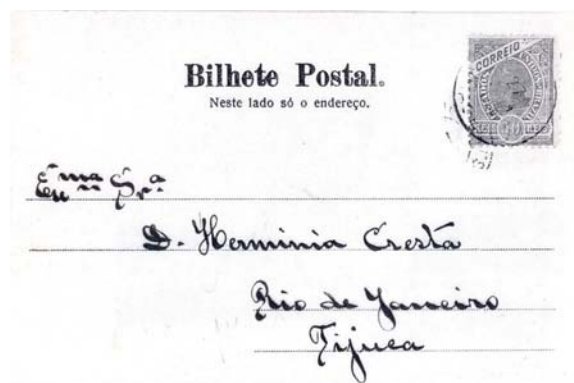 Bilhete Postal.
Neste lado só o endereço.
CORREIO
REIS
Exma Sra
D. Herminia Cresta
Rio de Janeiro
Tijuca